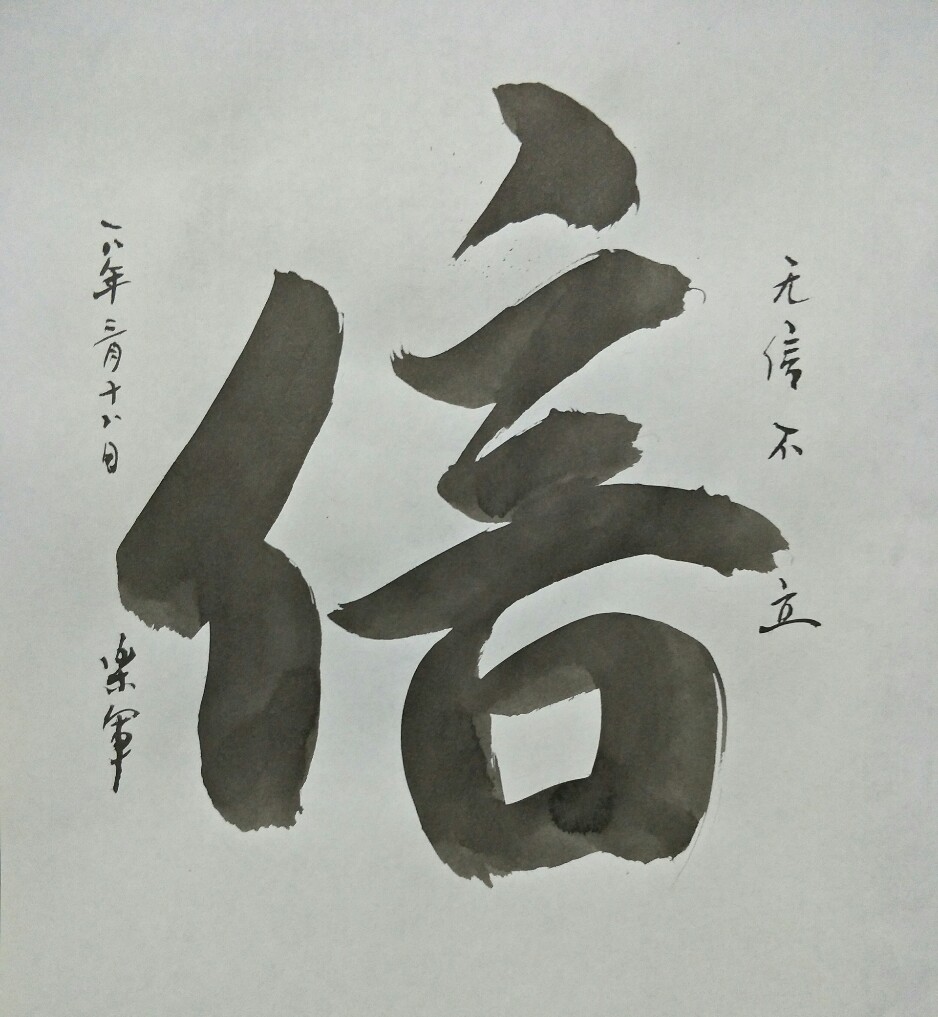 无信不立
信
一八年三月十八日
樂軍